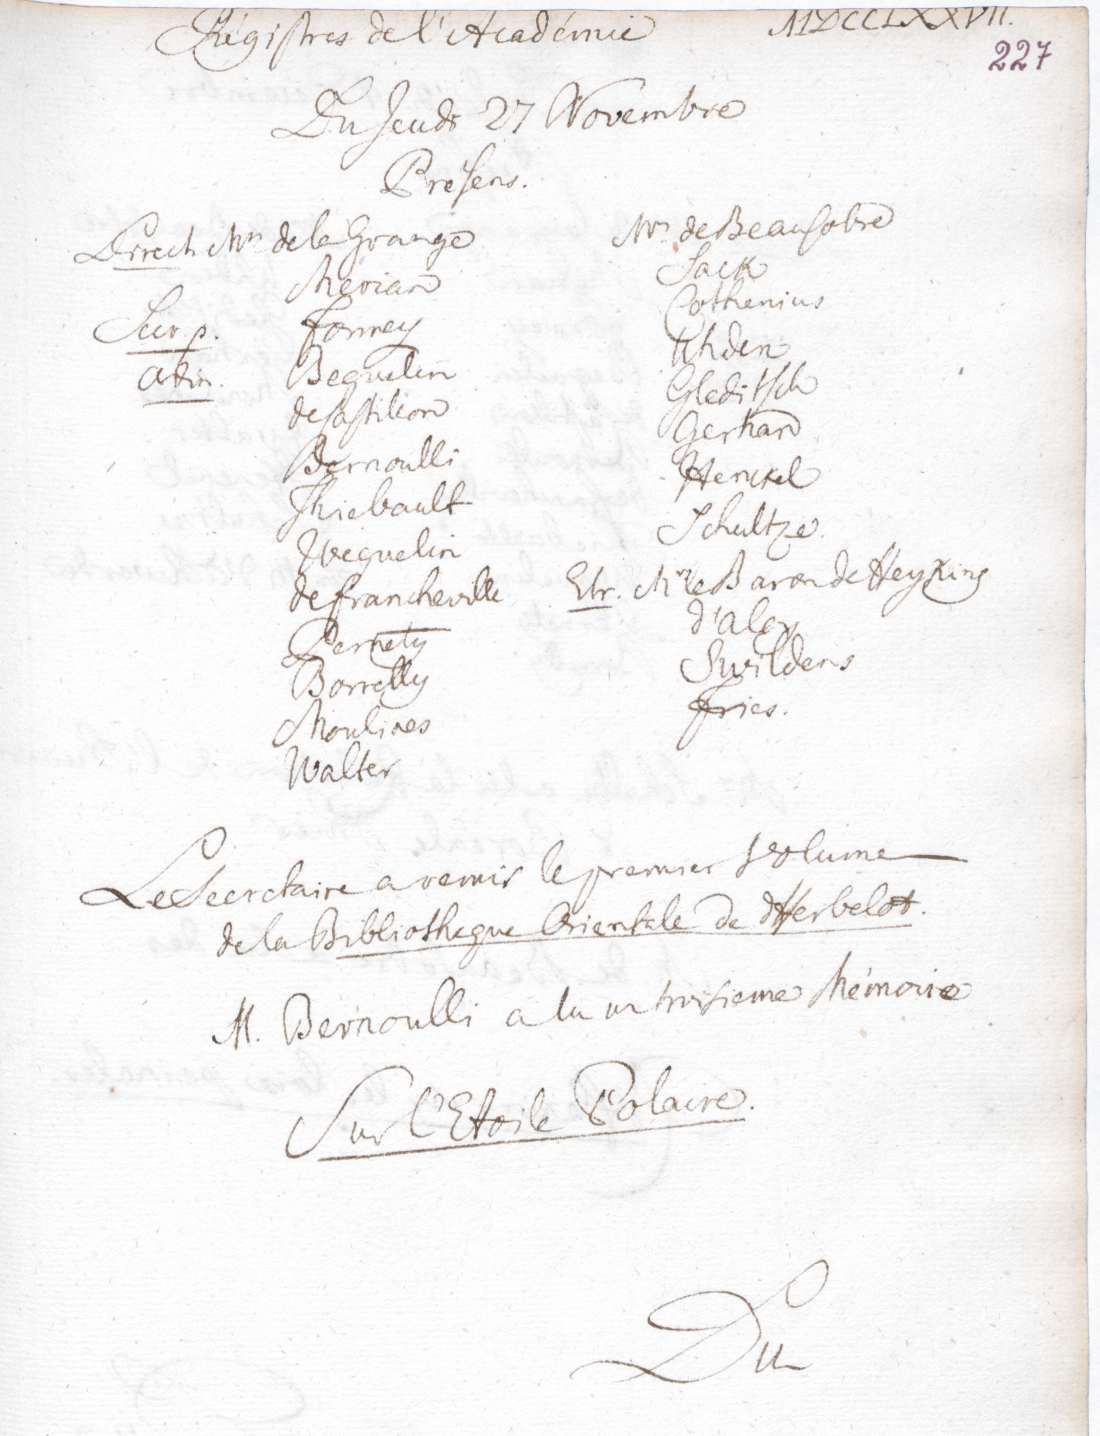 Régistres de l'Académie MDCCLXXVII.
227
Du Jeudi 27 Novembre
Presens.
Direct. Mrs. de la Grange
Merian
Secr. p. Formey
Adin. Beguelin
de Castillon
Bernoulli
Thiebault
Weguelin
de Francheville
Pernety
Borrelly
Moulines
Walter
Mrs. de Beausobre
Sack
Cothenius
Uhden
Gleditsch
Gerhard
Henckel
Schultze.
Etr. Mrs le Baron de Heyking
d'Aloy
Swildens
Fries.
Le Secretaire a remis le premier Volume
de la Bibliotheque Orientale de d'Herbelot.
M. Bernoulli a lu un troisieme Mémoire
Sur l'Etoile Polaire.
Du